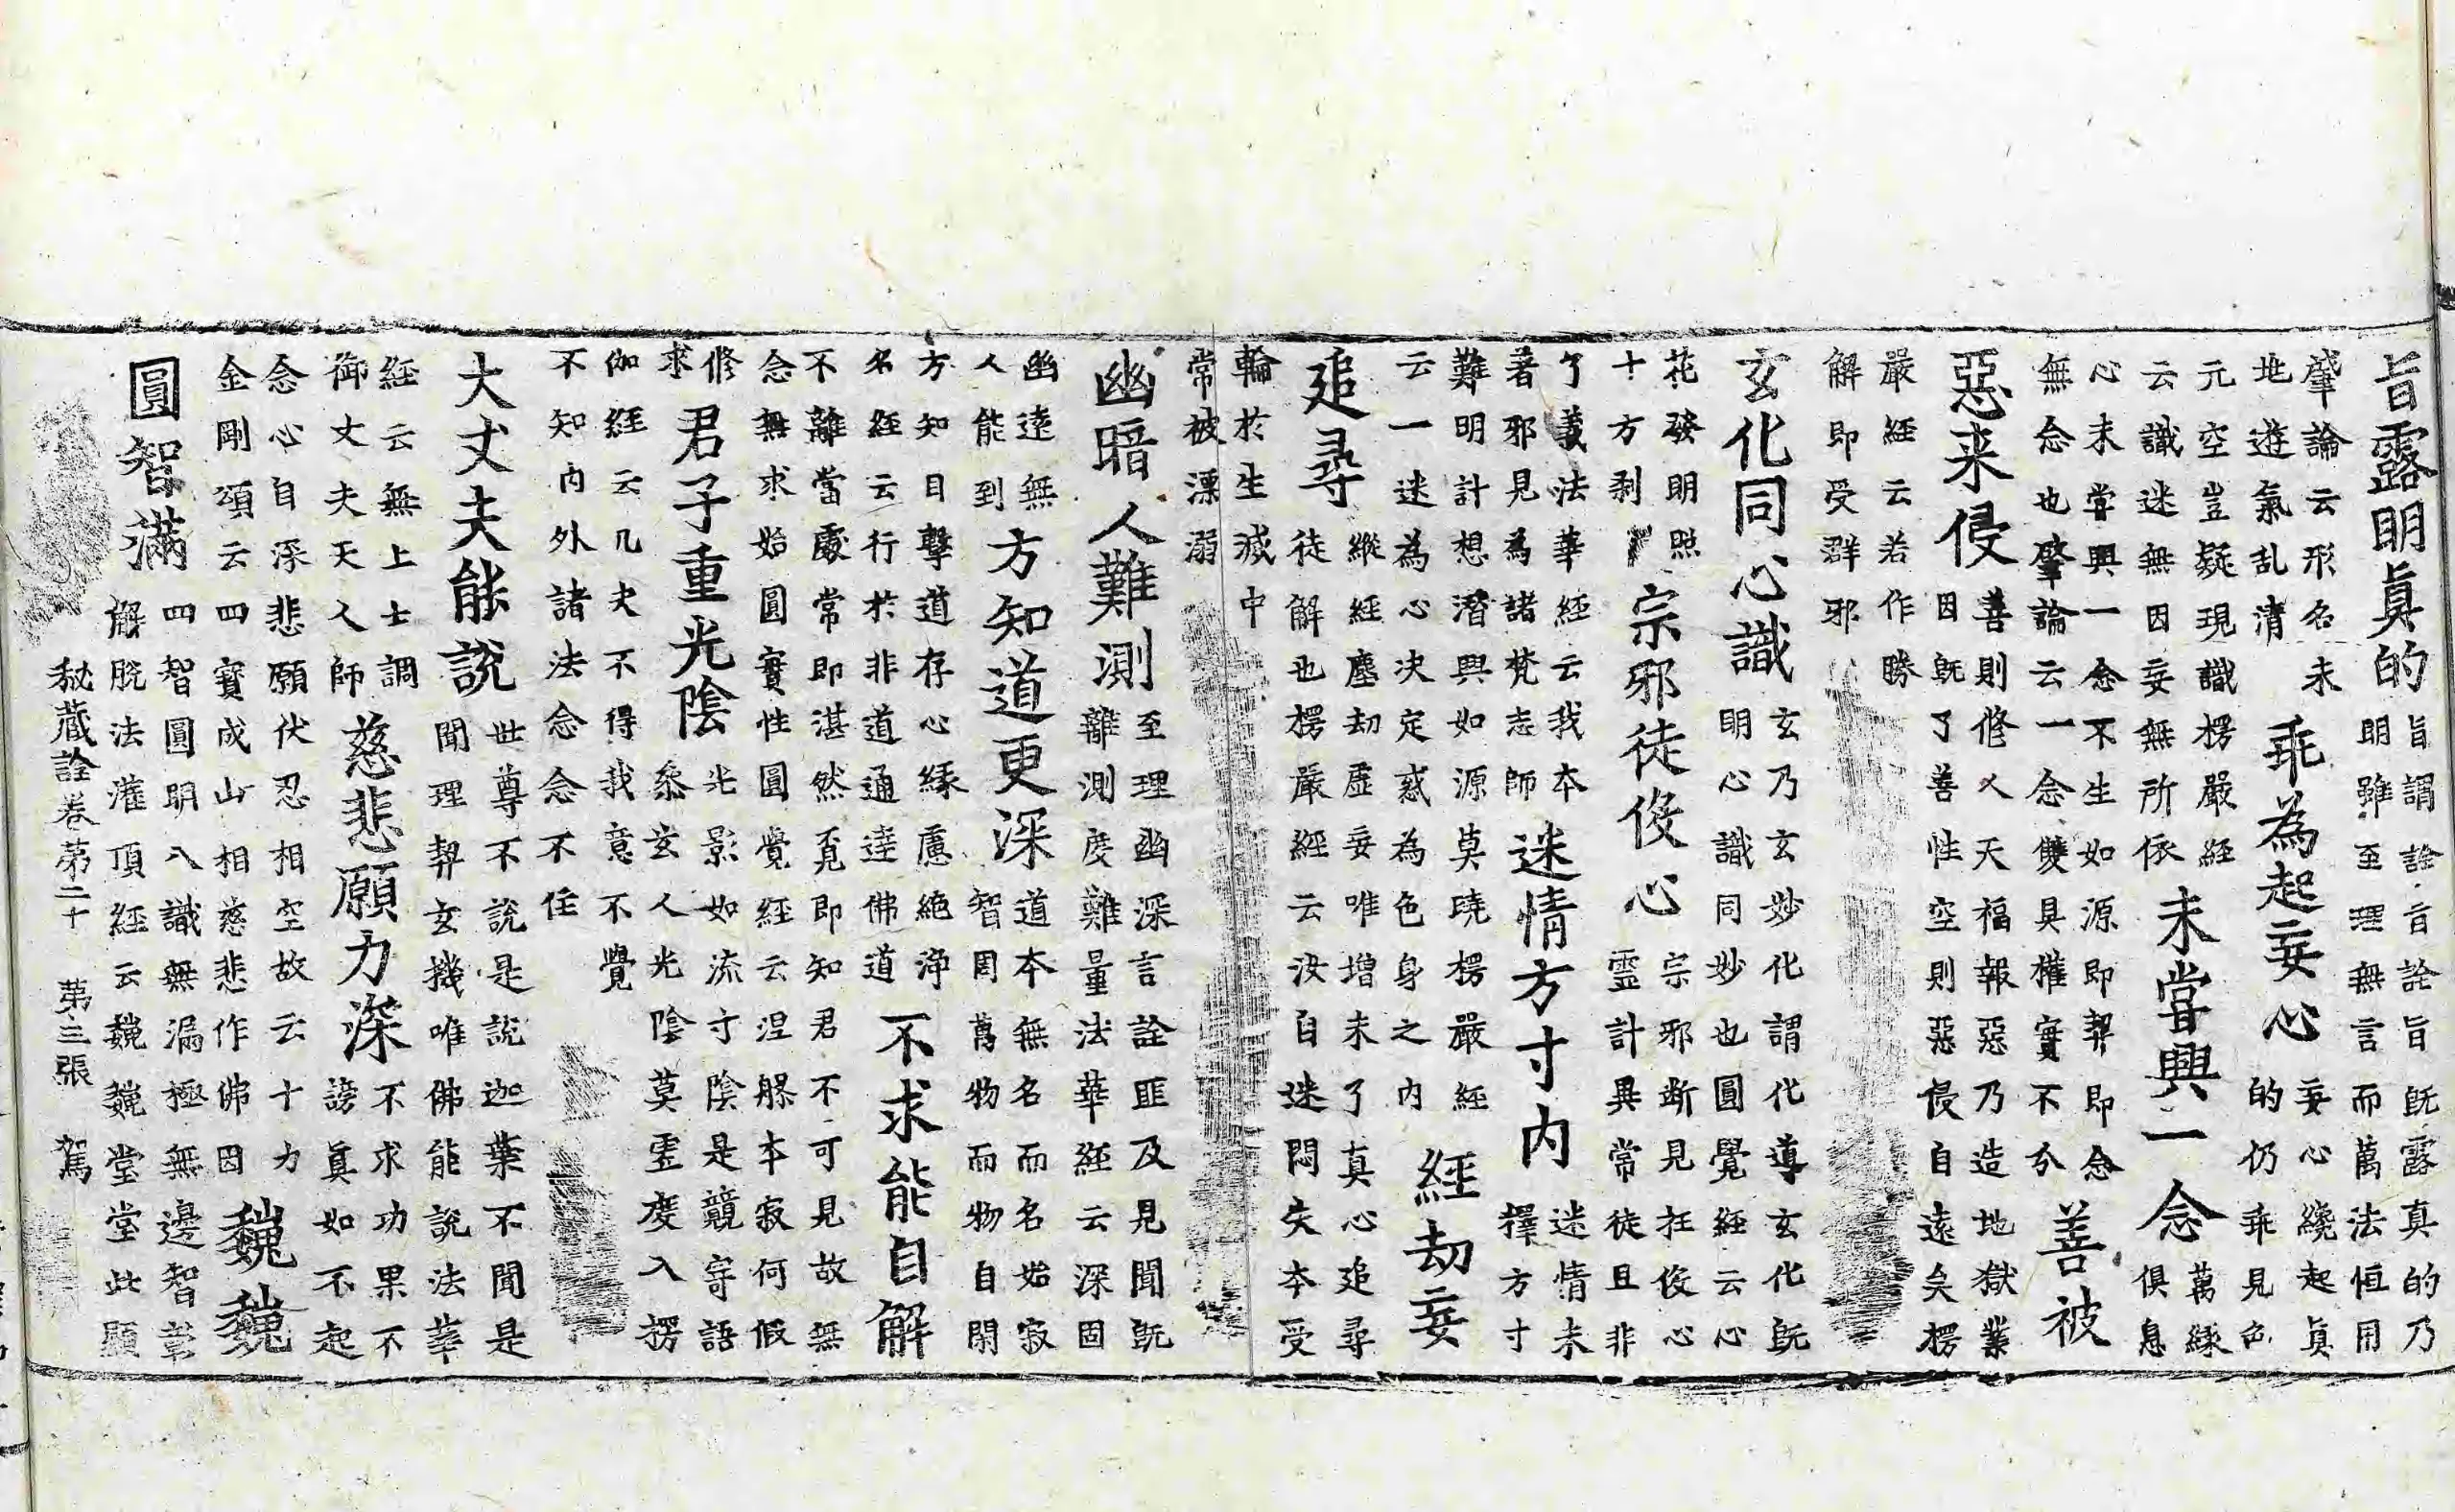 旨露明真的
旨謂詮旨詮旨既露真的乃
明雖至理無言而萬法恒用
肇論云形名未
地遊氣乱清
乖為起妄心
妄心纔起真
的仍乖見色
元空豈疑現識楞嚴經
云識迷無因妄無所依
未甞興一念
萬緣
俱息
心未甞興一念不生如源即契即念
無念也肇論云一念雙具權實不分
善被
惡来侵
善則修人天福報惡乃造地獄業
因既了善性空則惡侵自遠矣楞
嚴經云若作勝
解即受群邪
玄化同心識
玄乃玄妙化謂化導玄化既
明心識同妙也圓覺經云心
花發明照
十方刹
宗邪徒役心
宗邪断見抂役心
霊計異常徒且非
了義法華經云我本
著邪見為諸梵志師
迷情方寸内
迷情未
擇方寸
難明計想潛興如源莫曉楞嚴經
云一迷為心决定惑為色身之内
經劫妄
追尋
縱經塵劫虛妄唯增未了真心追尋
徒解也楞嚴經云汝自迷悶失本受
輪於生滅中
常被漂溺
幽暗人難測
至理幽深言詮匪及見聞既
離測度難量法華經云深固
幽遠無
人能到
方知道更深
道本無名而名始寂
智罔萬物而物自閑
方知目擊道存心緣慮絶淨
名經云行於非道通達佛道
不求能自解
不離當處常即湛然覓即知君不可見故無
念無求始圓實性圓覺經云涅槃本寂何假
修
求
君子重光陰
光影如流寸陰是競寄語
叅玄人光陰莫虛度入楞
伽經云凡夫不得我意不覺
不知内外諸法念念不住
大丈夫能說
世尊不說是說迦葉不聞是
聞理契玄機唯佛能說法華
經云無上士調
御丈夫天人師
慈悲願力深
不求功果不
謗真如不起
念心自深悲願伏忍相空故云十力
金剛頌云四寶成山相慈悲作佛因
巍巍
圓智滿
四智圓明八識無漏極無邊智常
解脫法灌頂經云巍巍堂堂此顯
秘蔵詮卷第二十 第三張 駕